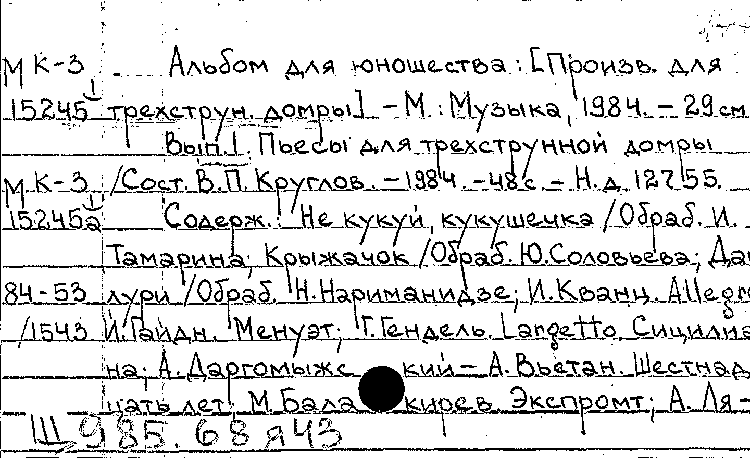 МК-3 Альбом для юношества: [Произв. для
15245 трехструн. домры] – М.: Музыка, 1984. – 29см
Вып. 1. Пьесы для трехструнной домры
МК-3 /Сост. В.П. Круглов. – 1984. – 48с. – Н.д. 12755.
15245а Содерж.: Не кукуй, кукушечка /Обраб. И.
Тамарина; Крыжачок /Обраб. Ю.Соловьева; Даи
84-53 лури /Обраб. Н.Нариманидзе; И.Кванц. Allegro
/1543 Й.Гайдн. Менуэт; Г.Гендель. Largetto. Сицилиа
на; А. Даргомыжский – А. Вьетан. Шестнад
цать лет; М. Балакирев. Экспромт; А. Ля-
Щ 985.68я43